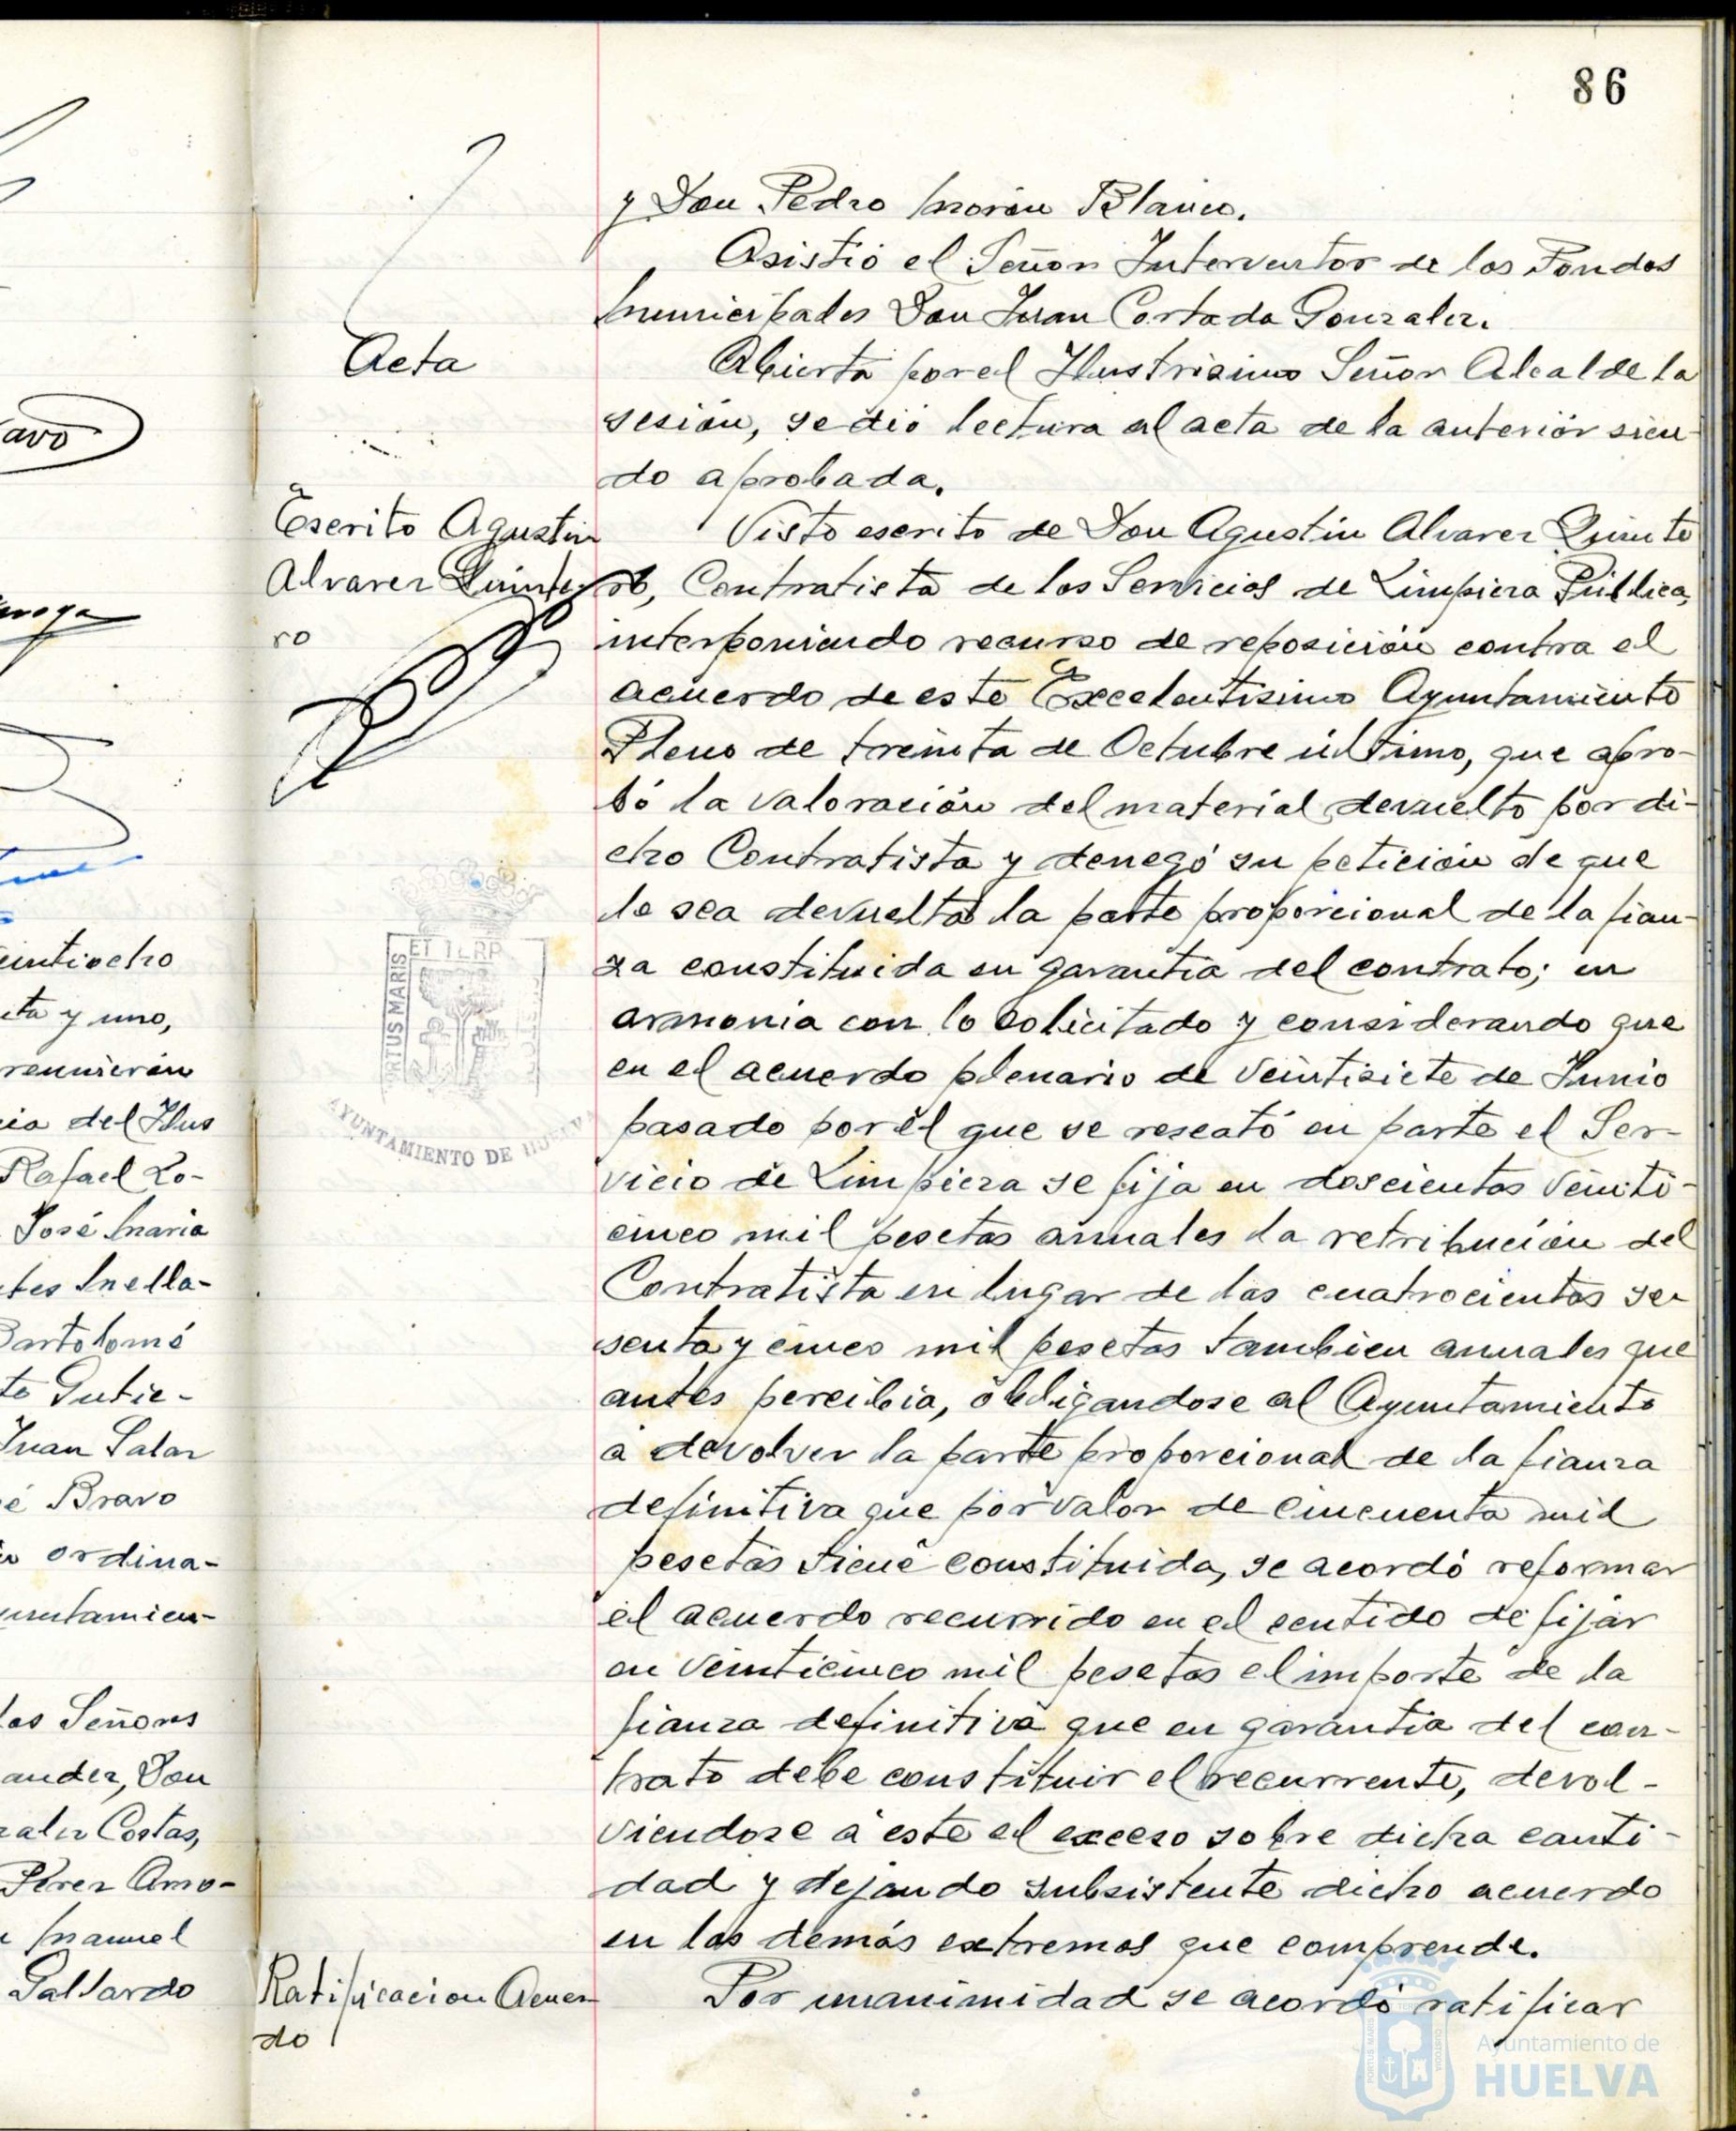 86
y Don Pedro Morón Blanco.
Asistió el Señor Interventor de los Fondos
Municipales Don Juan Cortada Gonzalez.
Acta
Abierta por el Ilustrisimo Señor Alcalde la
sesión, se dió lectura al acta de la anterior sien-
do aprobada.
Escrito Agustin
Alvarez Quinte
ro
Visto escrito de Don Agustin Alvarez Quinte
ro, Contratista de los Servicios de Limpieza Pública,
interponiendo recurso de reposición contra el
acuerdo de este Excelentisimo Ayuntamiento
Pleno de treinta de Octubre último, que apro-
bó la valoración del material devuelto por di-
cho Contratista y denegó su petición de que
le sea devuelta la parte proporcional de la fian-
za constituida en garantia del contrato; en
armonia con lo solicitado y considerando que
en el acuerdo plenario de veintisiete de Junio
pasado por el que se rescató en parte el Ser-
vicio de Limpieza se fija en doscientas veinti-
cinco mil pesetas anuales la retribución del
Contratista en lugar de las cuatrocientas se
senta y cinco mil pesetas tambien anuales que
antes percibia, obligandose al Ayuntamiento
a devolver la parte proporcional de la fianza
definitiva que por valor de cincuenta mil
pesetas tiene constituida, se acordó reformar
el acuerdo recurrido en el sentido de fijar
en veinticinco mil pesetas el importe de la
fianza definitiva que en garantia del con-
trato debe constituir el recurrente, devol-
viendose a este el exceso sobre dicha canti-
dad y dejando subsistente dicho acuerdo
en los demás extremos que comprende.
Ratificacion Acuer
do
Por unanimidad se acordó ratificar
ET TERR
PORTUS MARIS
AYUNTAMIENTO DE HUELVA
Ayuntamiento de
HUELVA
avo
eintiocho
eta y uno,
reunieron
cia del Ilus
Rafael Lo-
José Maria
tes Mella-
Bartolomé
to Gutie-
Juan Salar
é Bravo
ordina-
yuntamien-
los Señores
ander, Don
zalez Costas,
Perez Amo-
Manuel
Gallardo